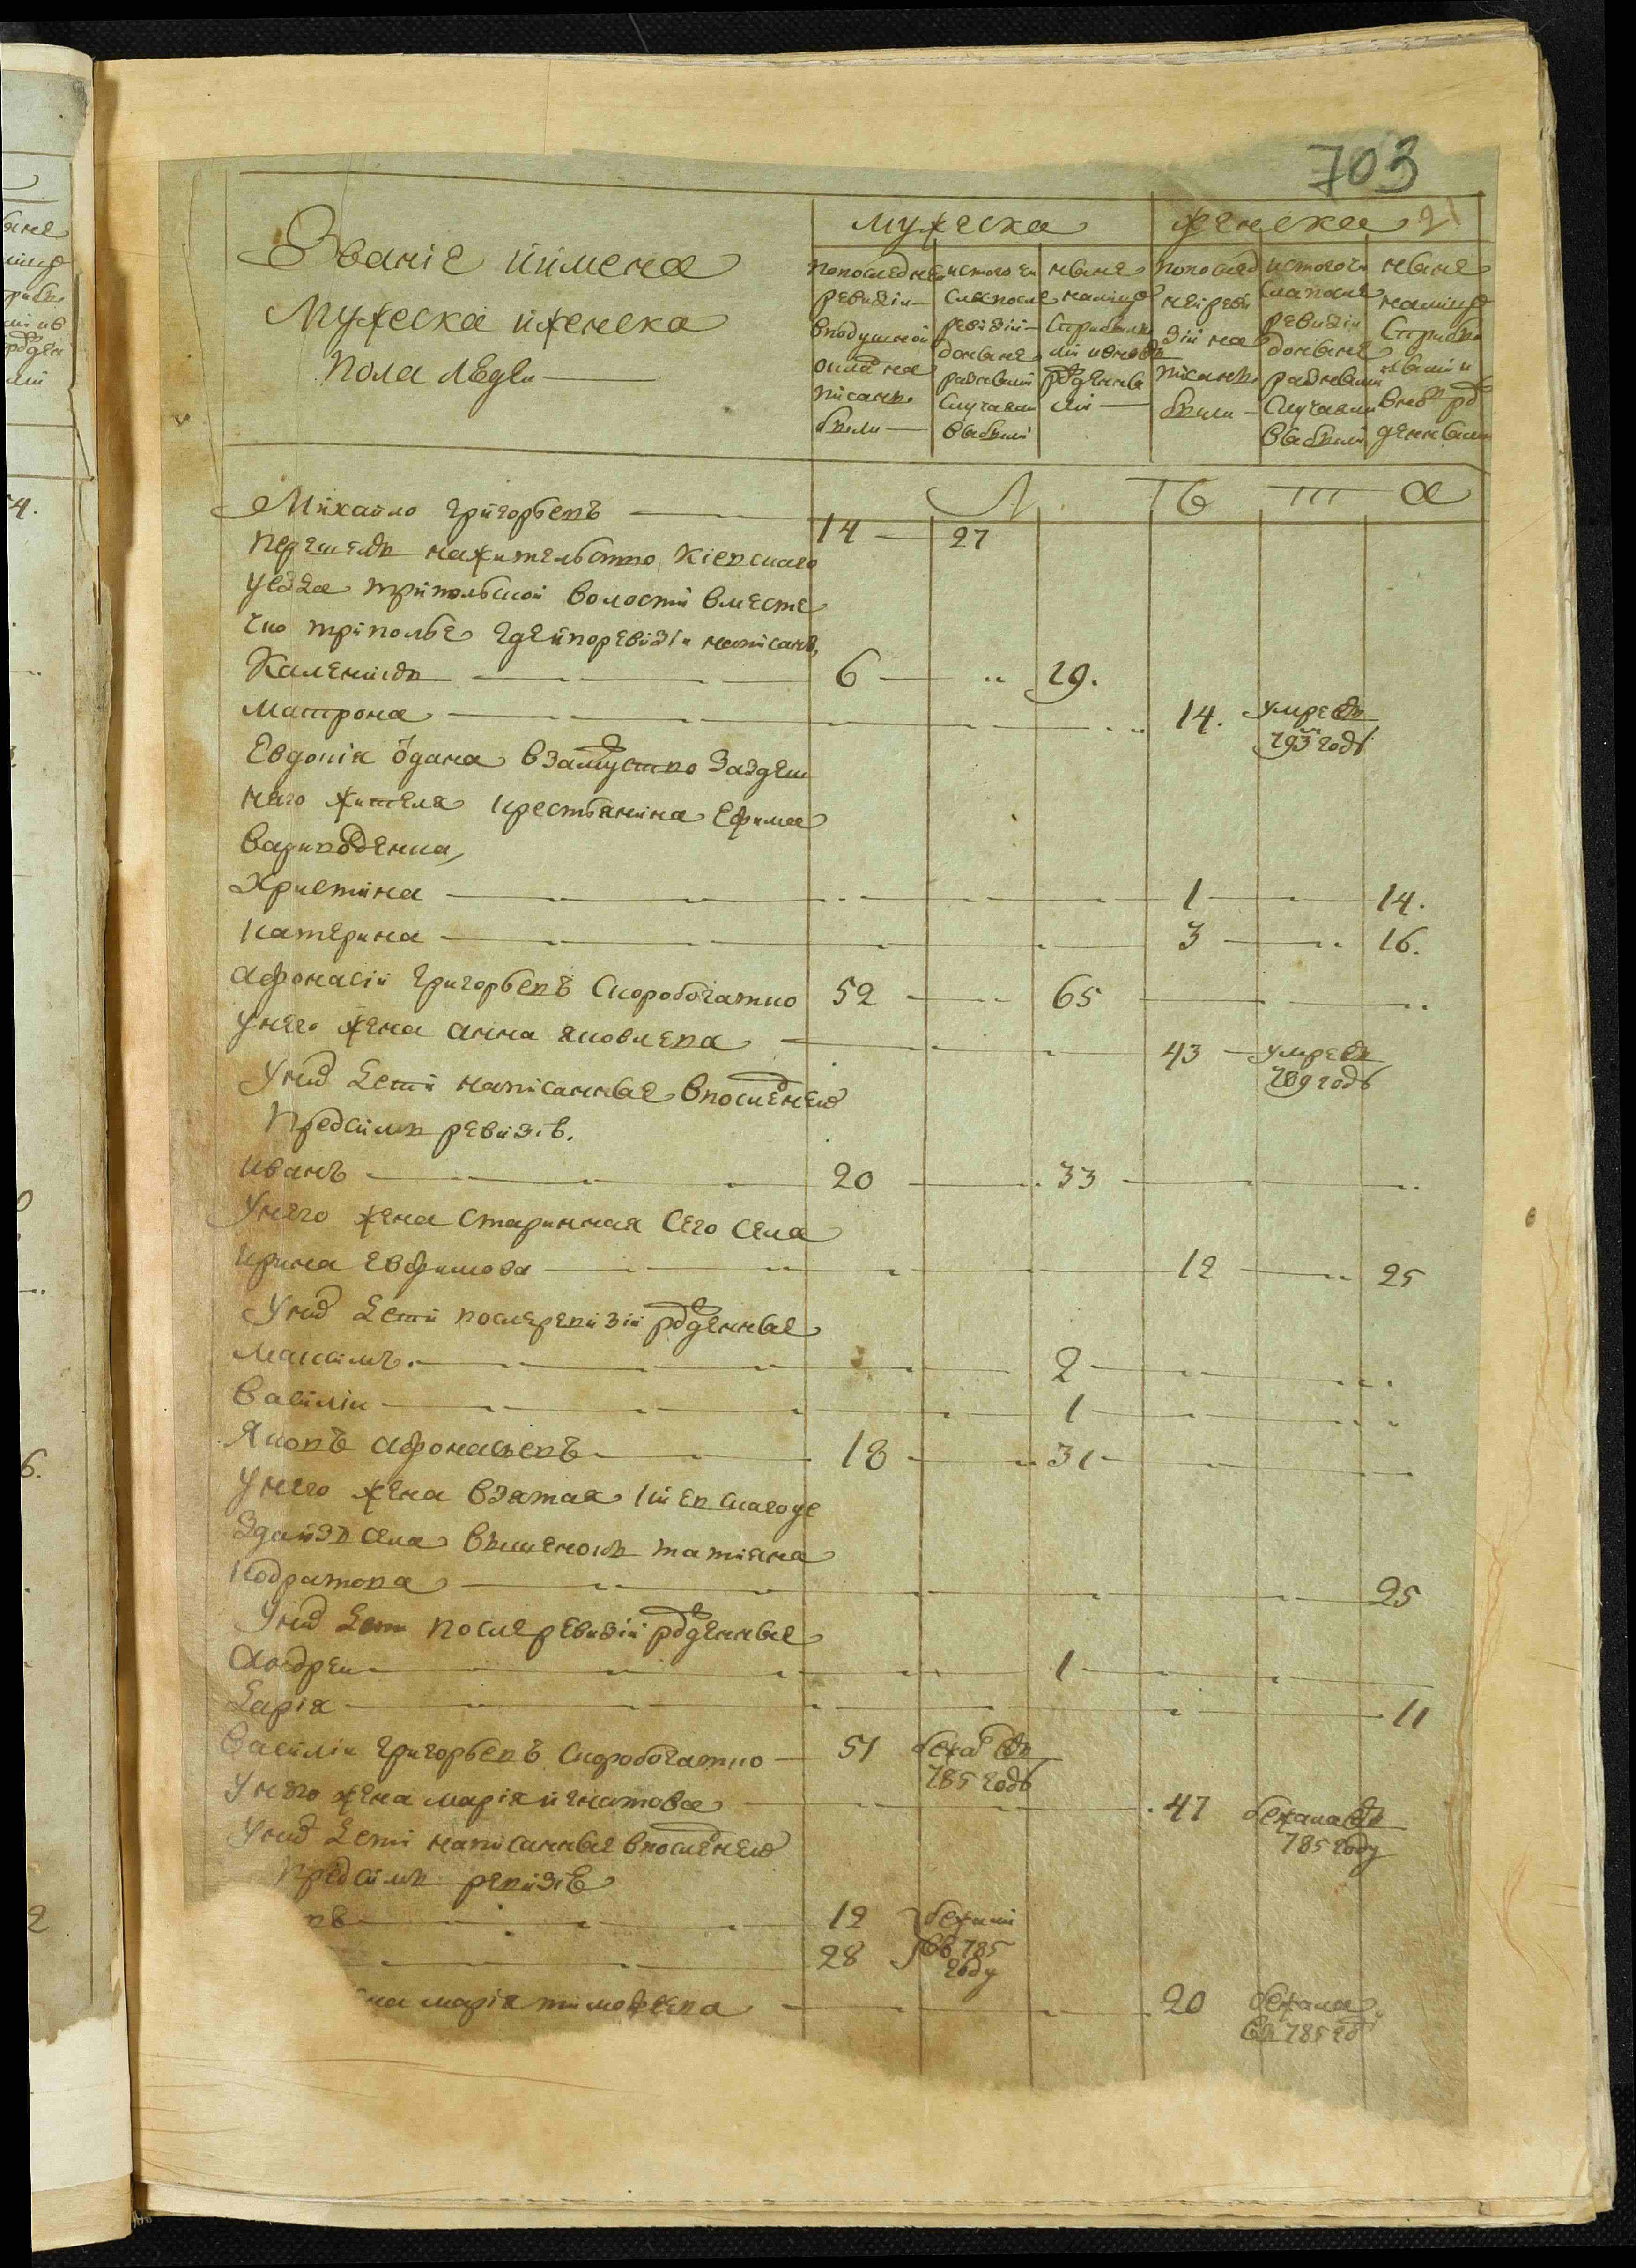 703
Званіе и имена
мужеска и женска
пола людеи
мужеска
женска
по последней
ревизіи
в подушной
окладъ на
писанъ
были
ис того чи
сла после
ревизіи
до ныне
разными
случаями
выбыли
ныне
налицо
с прибылы
ми и вновь
рожденны
ми
по послед
ней реви
зіи на
писанъ
были
ис того чи
сла после
ревизіи
до ныне
разными
случаями
выбыли
ныне
налицо
с прибы
лыми и
вновь ро
жденными
Л Ѣ Т А
Михайло Григорьевъ 14 27
перешелъ на жительство Кіевскаго
уезда Трипольской волости в месте
чко Триполье где и по ревизіи написанъ,
Каленикъ 6 29.
Матрона 14. умре въ
793 годѣ
Евдокія одана в замуство за здеш
няго жителя крестьянина Ефима
Христина 1 14.
Катерина 3 16.
Афонасій Григорьевъ Скоробогатко 52 65
У него жена Анна Яковлева 43 умре въ
789 годѣ
У них дети написанные в последнею
пред симъ ревизію.
Иванъ 20 33
У него жена старинная сего села
Ирина Евфимова 12 25
У них дети после ревизіи рожденные
Максимъ. 2
Василіи 1
Яковъ Афонасьевъ 18 31
У него жена взятая Киевскаго уе
зда изъ села Татияна
Кодратова 25
У них дети после ревизіи рожденные
Андреи 1
Дарія 11
Василіи Григорьевъ Скоробогатко 51 бежал въ
785 годѣ
У него жена Марія Игнатова 47 бежала въ
785 году
У них дети написанные в последнею
пред симъ ревизію
въ 12 бежали
28 въ 785
году
на Марія Тимофеева 20 бежала
въ 785 год